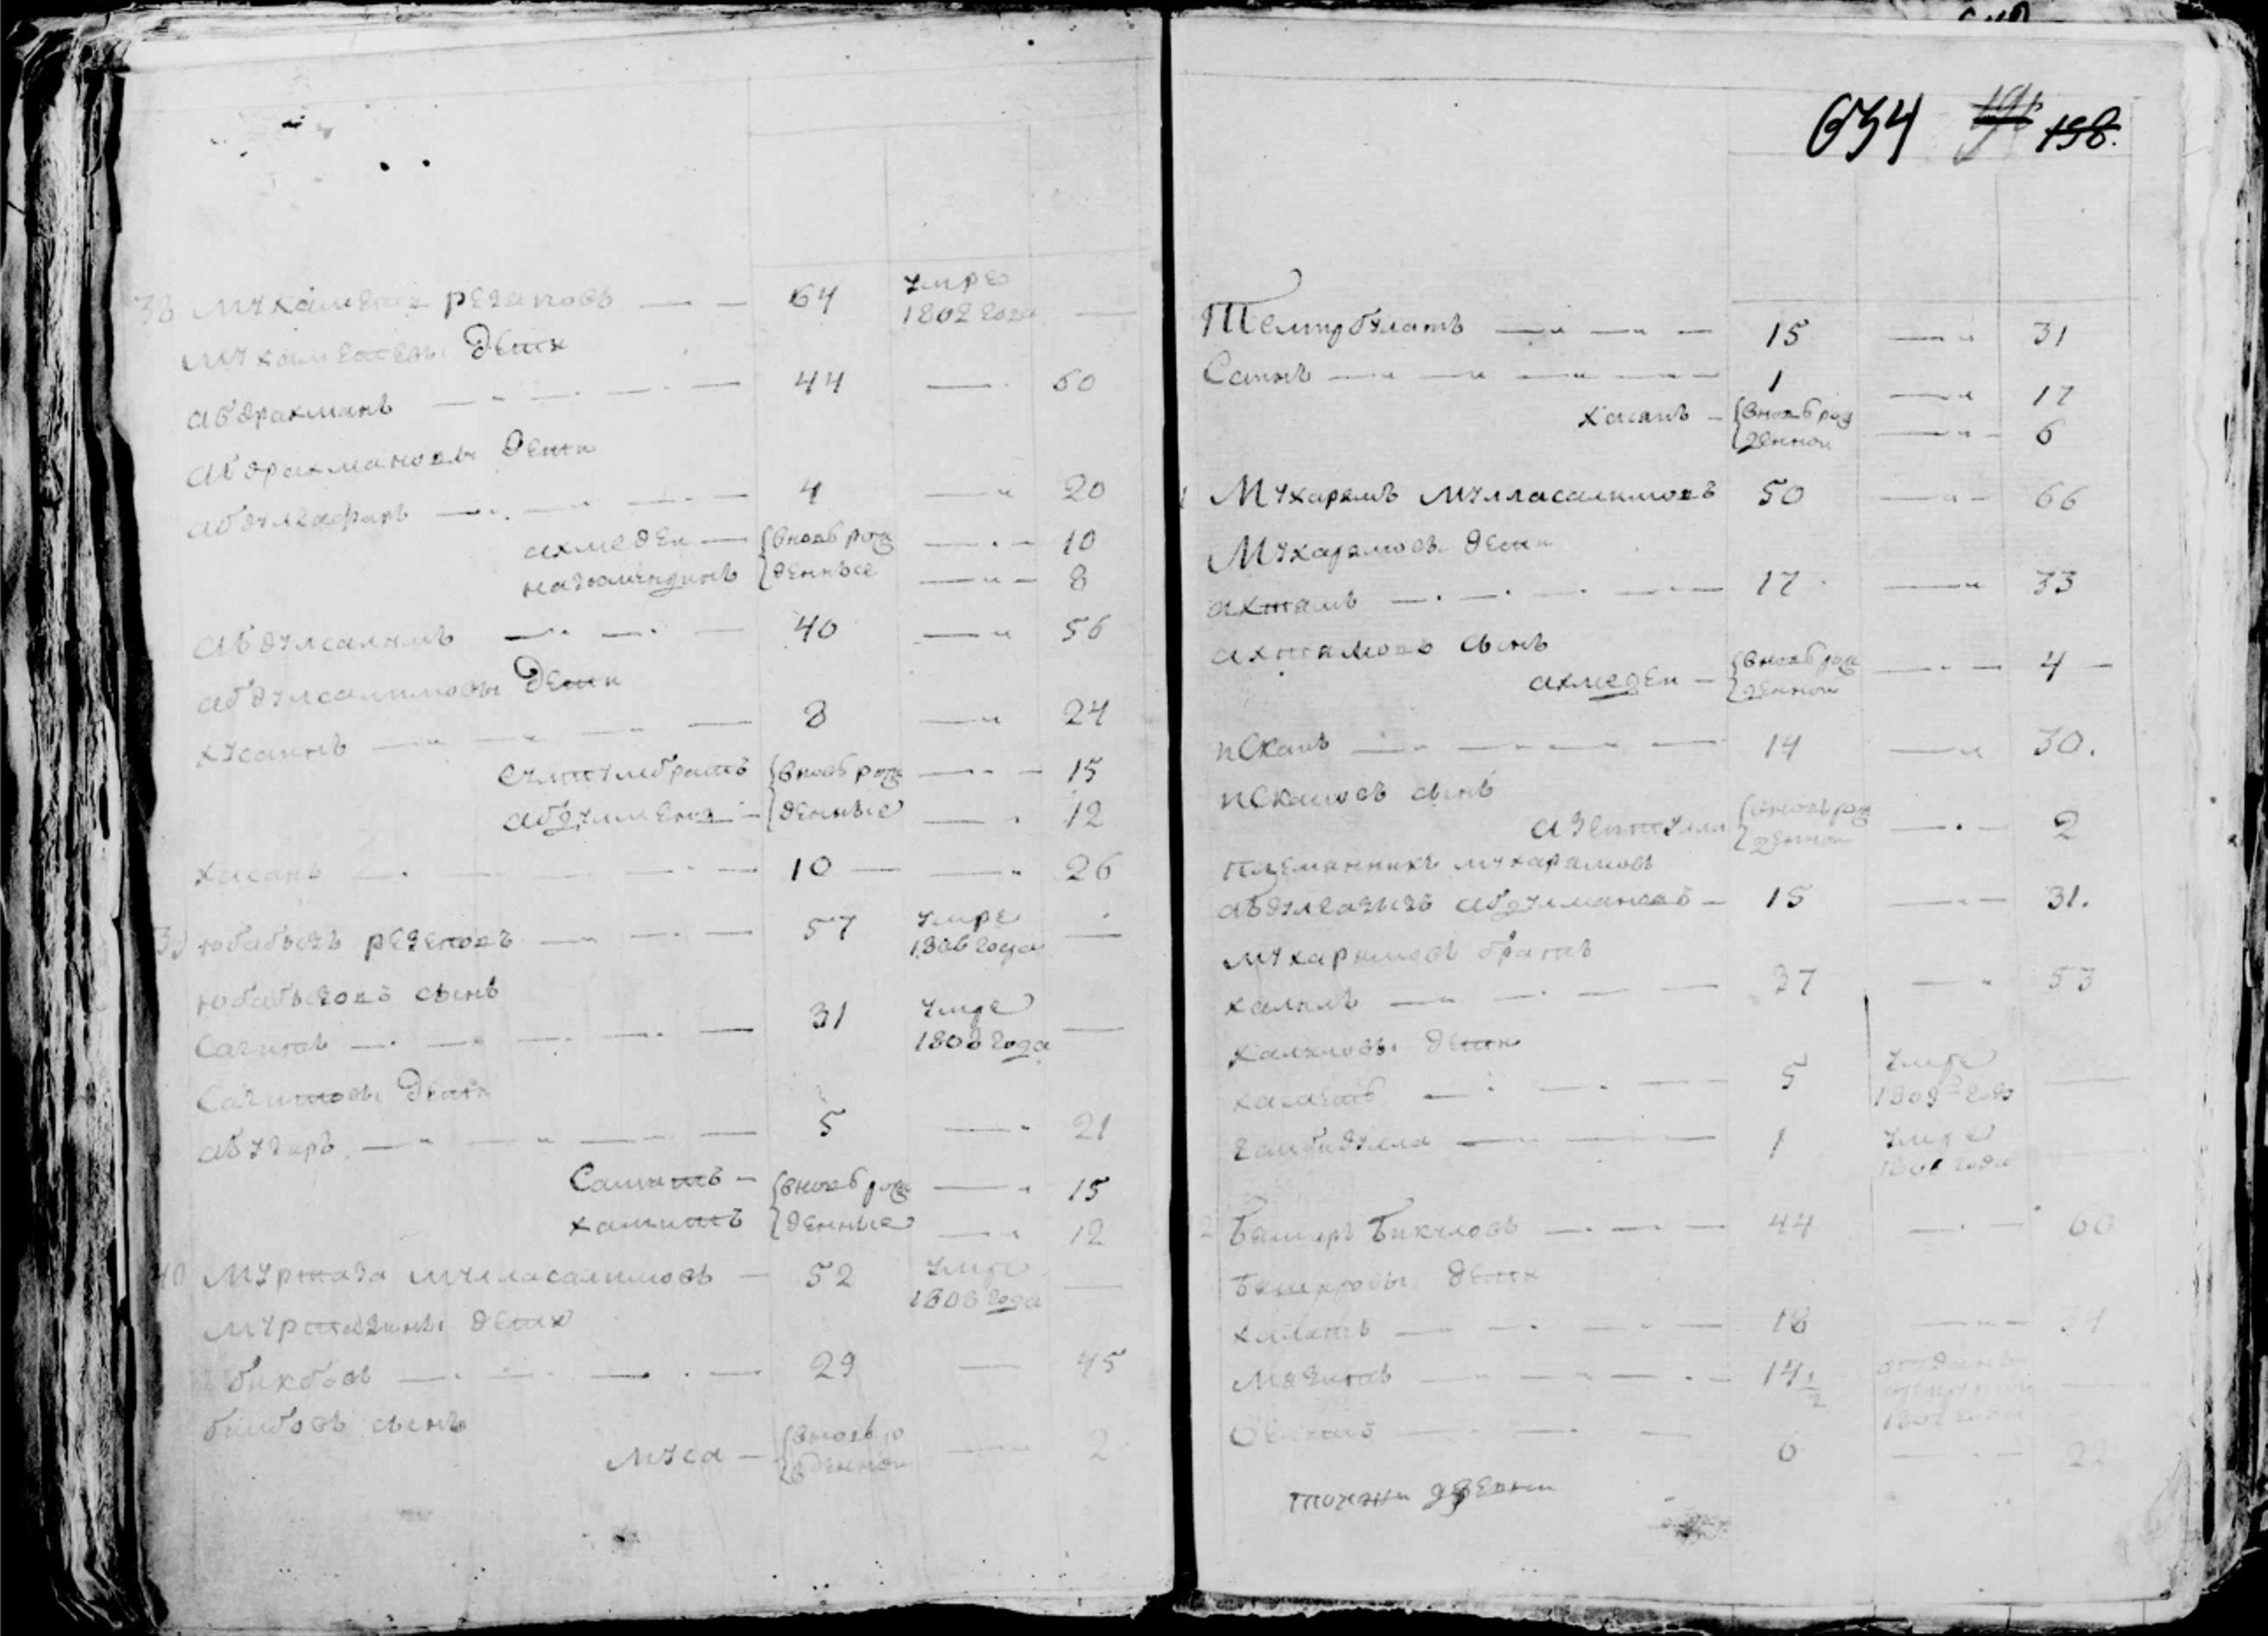 634 198.
38 Мухаметъ Резаповъ 64 умре
1802 года
Мухаметевы дети
абдрахманъ 44 60
абдрахмановы дети
абдулгафаръ 4 20
ахмеден {вновь рож 10
нагюметдинъ {денные 8
абдулсалямъ 40 56
абдулсалимовы дети
хусаинъ 8 24
{вновь рож 15
{денные 12
хасанъ 10 26
39 юбабызъ резеповъ 57 умре
1806 года
юбабызовъ сынъ
Сагитъ 31 умре
1808 года
Сагитовы дети
абузаръ 5 21
Самитъ {вновь рож 15
хамитъ {денные 12
40 Муртаза Мулласалимовъ 52 умре
1808 года
Муртазины дети
бикбовъ 29 45
бикбовъ сынъ
муса {вновь ро
{жденной 2
Темирбулатъ 15 31
Сатнъ 1 17
хасанъ {вновь рож
{денной 6
1 Мухарямъ Мулласалимовъ 50 66
Мухарямовы дети
ахтямъ 17 33
ахтямовъ сынъ
ахмеден {вновь рож
{денной 4
искамъ 14 30.
искамовъ сынъ
{вновь рож
{денной 2
племянникъ мухарямовъ
абдулгазизъ абдулмановъ 15 31.
мухарямовъ братъ
халилъ 37 53
халиловы дети
5 умре
1809 году
гайбидулла 1 умре
года
2 Башаръ Бикчловъ 44 60
Башаровы дети
халитъ 18 34
Мязитъ 14 1/2 отданъ
6 22
тожжи деревни